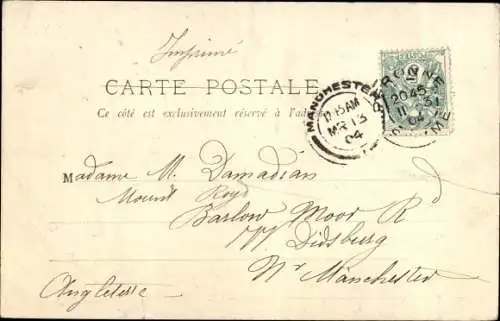 Imprimé
CARTE POSTALE
Ce côté est exclusivement réservé à l'adre
MANCHESTER
11.15AM
MR 13
04
PERONNE
20 45
11 3
04
SOMME
M
Madame M. Damadian
Mount Royd
Barlow Moor Rd
Didsburg
Nr Manchester
Angleterre